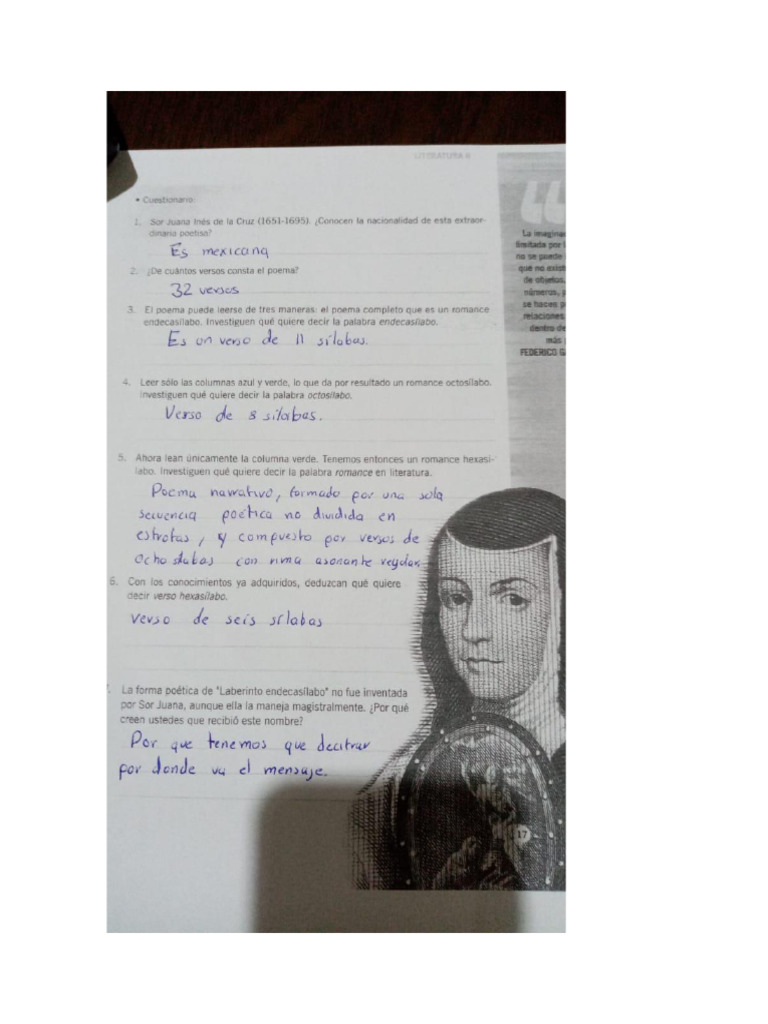 LITERATURA II
• Cuestionario:
1. Sor Juana Inés de la Cruz (1651-1695). ¿Conocen la nacionalidad de esta extraor-
dinaria poetisa?
Es mexicana
2. ¿De cuántos versos consta el poema?
32 versos
3. El poema puede leerse de tres maneras: el poema completo que es un romance
endecasílabo. Investiguen qué quiere decir la palabra endecasílabo.
Es un verso de 11 sílabas.
4. Leer sólo las columnas azul y verde, lo que da por resultado un romance octosílabo.
Investiguen qué quiere decir la palabra octosílabo.
Verso de 8 sílabas.
5. Ahora lean únicamente la columna verde. Tenemos entonces un romance hexasí-
labo. Investiguen qué quiere decir la palabra romance en literatura.
Poema narrativo, formado por una sola
secuencia poética no dividida en
estrofas, y compuesto por versos de
ocho silabas con rima asonante
6. Con los conocimientos ya adquiridos, deduzcan qué quiere
decir verso hexasílabo.
verso de seis sílabas
. La forma poética de "Laberinto endecasílabo" no fue inventada
por Sor Juana, aunque ella la maneja magistralmente. ¿Por qué
creen ustedes que recibió este nombre?
Por que tenemos que decifrar
por donde va el mensaje.
“
La imagina
limitada por l
no se puede
que no exist
de objetos,
números, p
se haces p
relaciones
dentro de
más
FEDERICO G
17